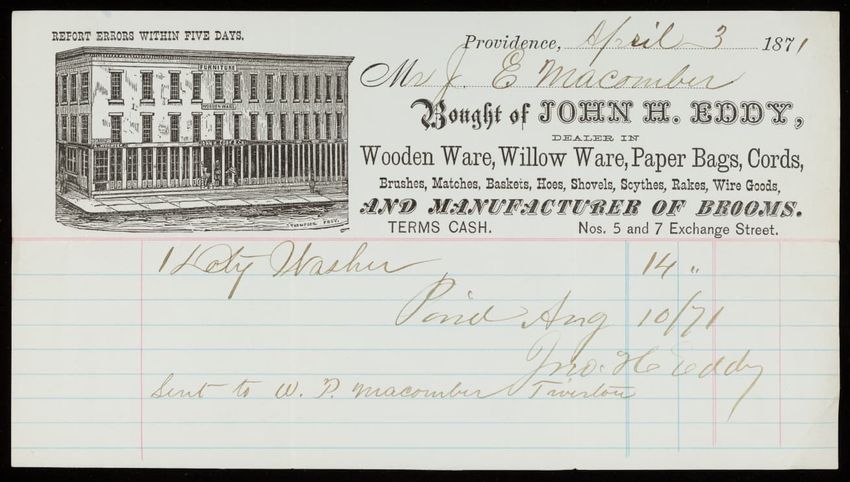 REPORT ERRORS WITHIN FIVE DAYS.
FURNITURE
WOODEN WARE
JOHN H. EDDY & CO.
THOMPSON PROV.
Providence, April 3 1871
Mr J. E Macomber
Bought of JOHN H. EDDY,
DEALER IN
Wooden Ware, Willow Ware, Paper Bags, Cords,
Brushes, Matches, Baskets, Hoes, Shovels, Scythes, Rakes, Wire Goods,
AND MANUFACTURER OF BROOMS.
TERMS CASH. Nos. 5 and 7 Exchange Street.
1 Washer 14 "
Paid Aug 10/71
Jno. H Eddy
Sent to W. P. Macomber Tiverton